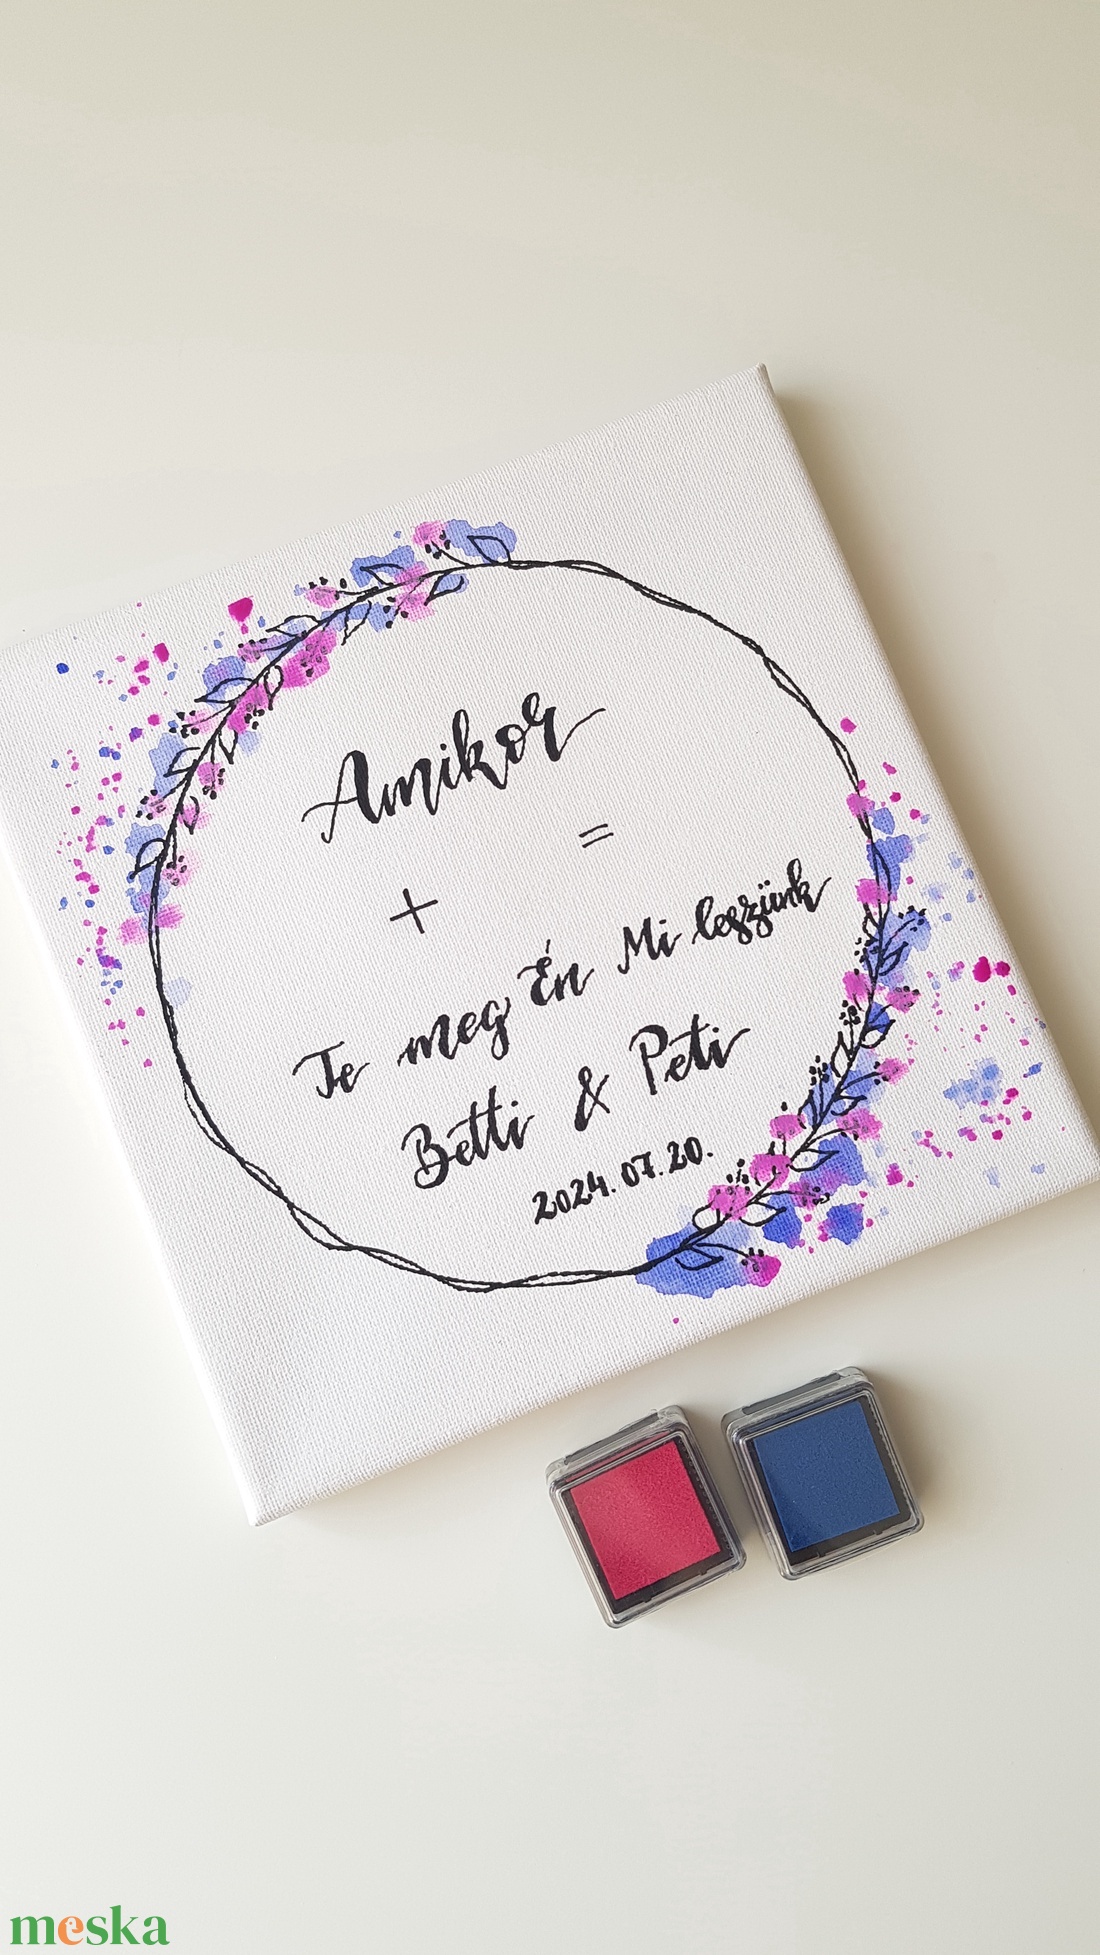 Amikor
+ =
Te meg Én Mi leszünk
Betti & Peti
2024. 07. 20.
meska